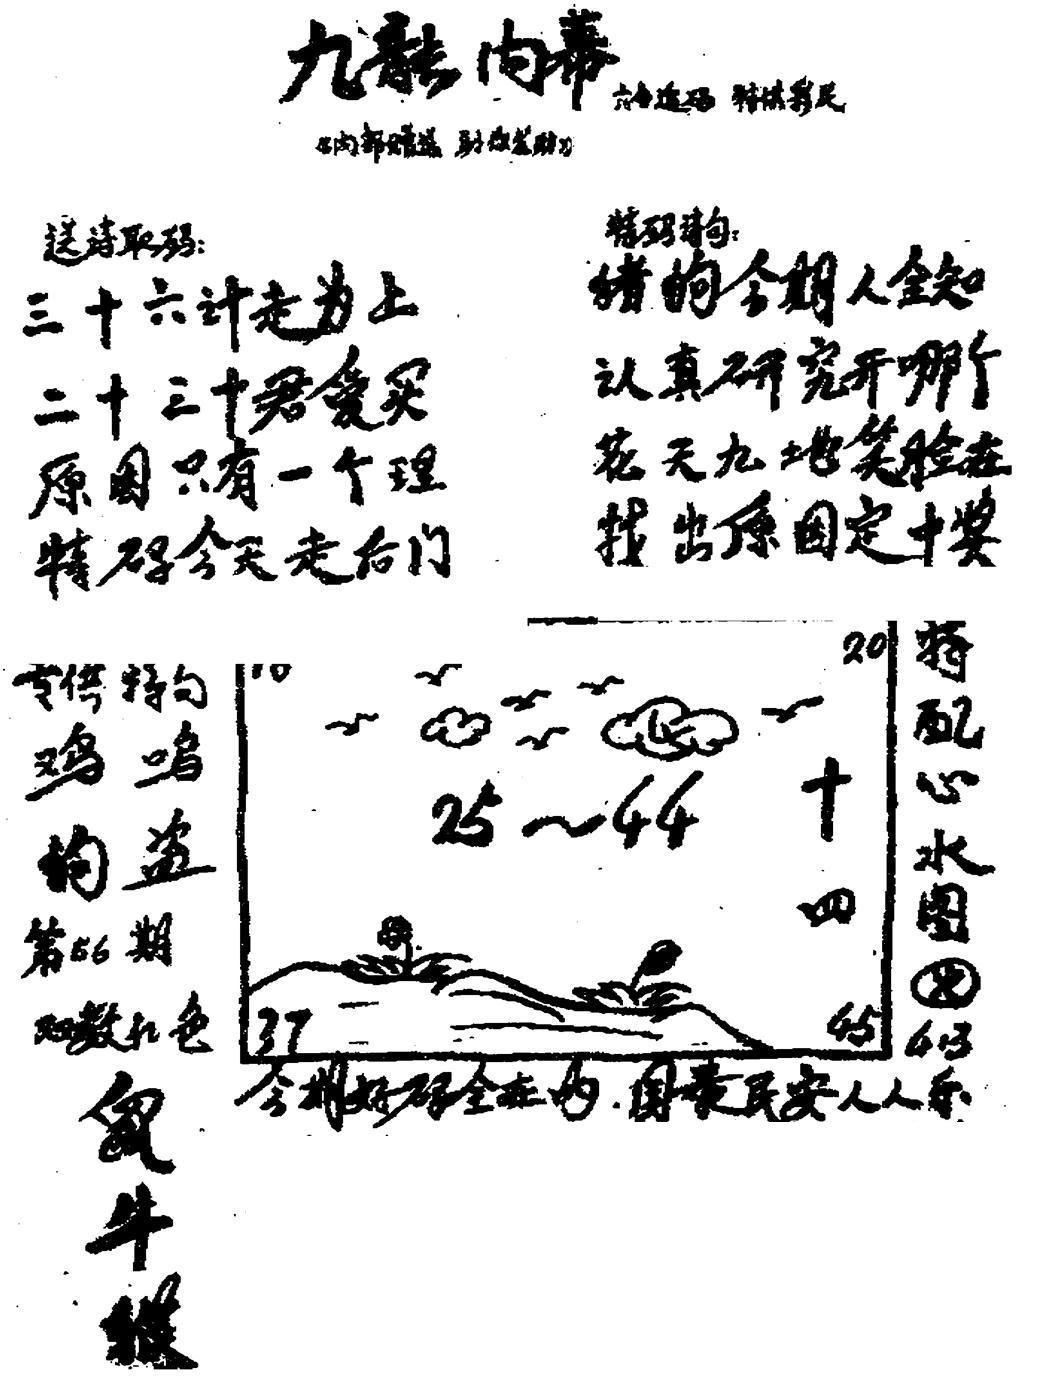 九龍内幕
六合透码 特供彩民
《内部赠送 功效》
送诗取码:
三十六计走为上
二十三十君爱买
原因只有一个理
特码今天走后门
特码诗句:
猪狗今期人全知
认真研究开哪个
花天九地笑脸在
找出原因定中奖
专供特句
鸡鸣
狗盗
第56期
双数红色
兔
牛
猴
10
20
25～44
十
四
37
45
特配心水图
4.13
今期好码全在内
国泰民安人人乐